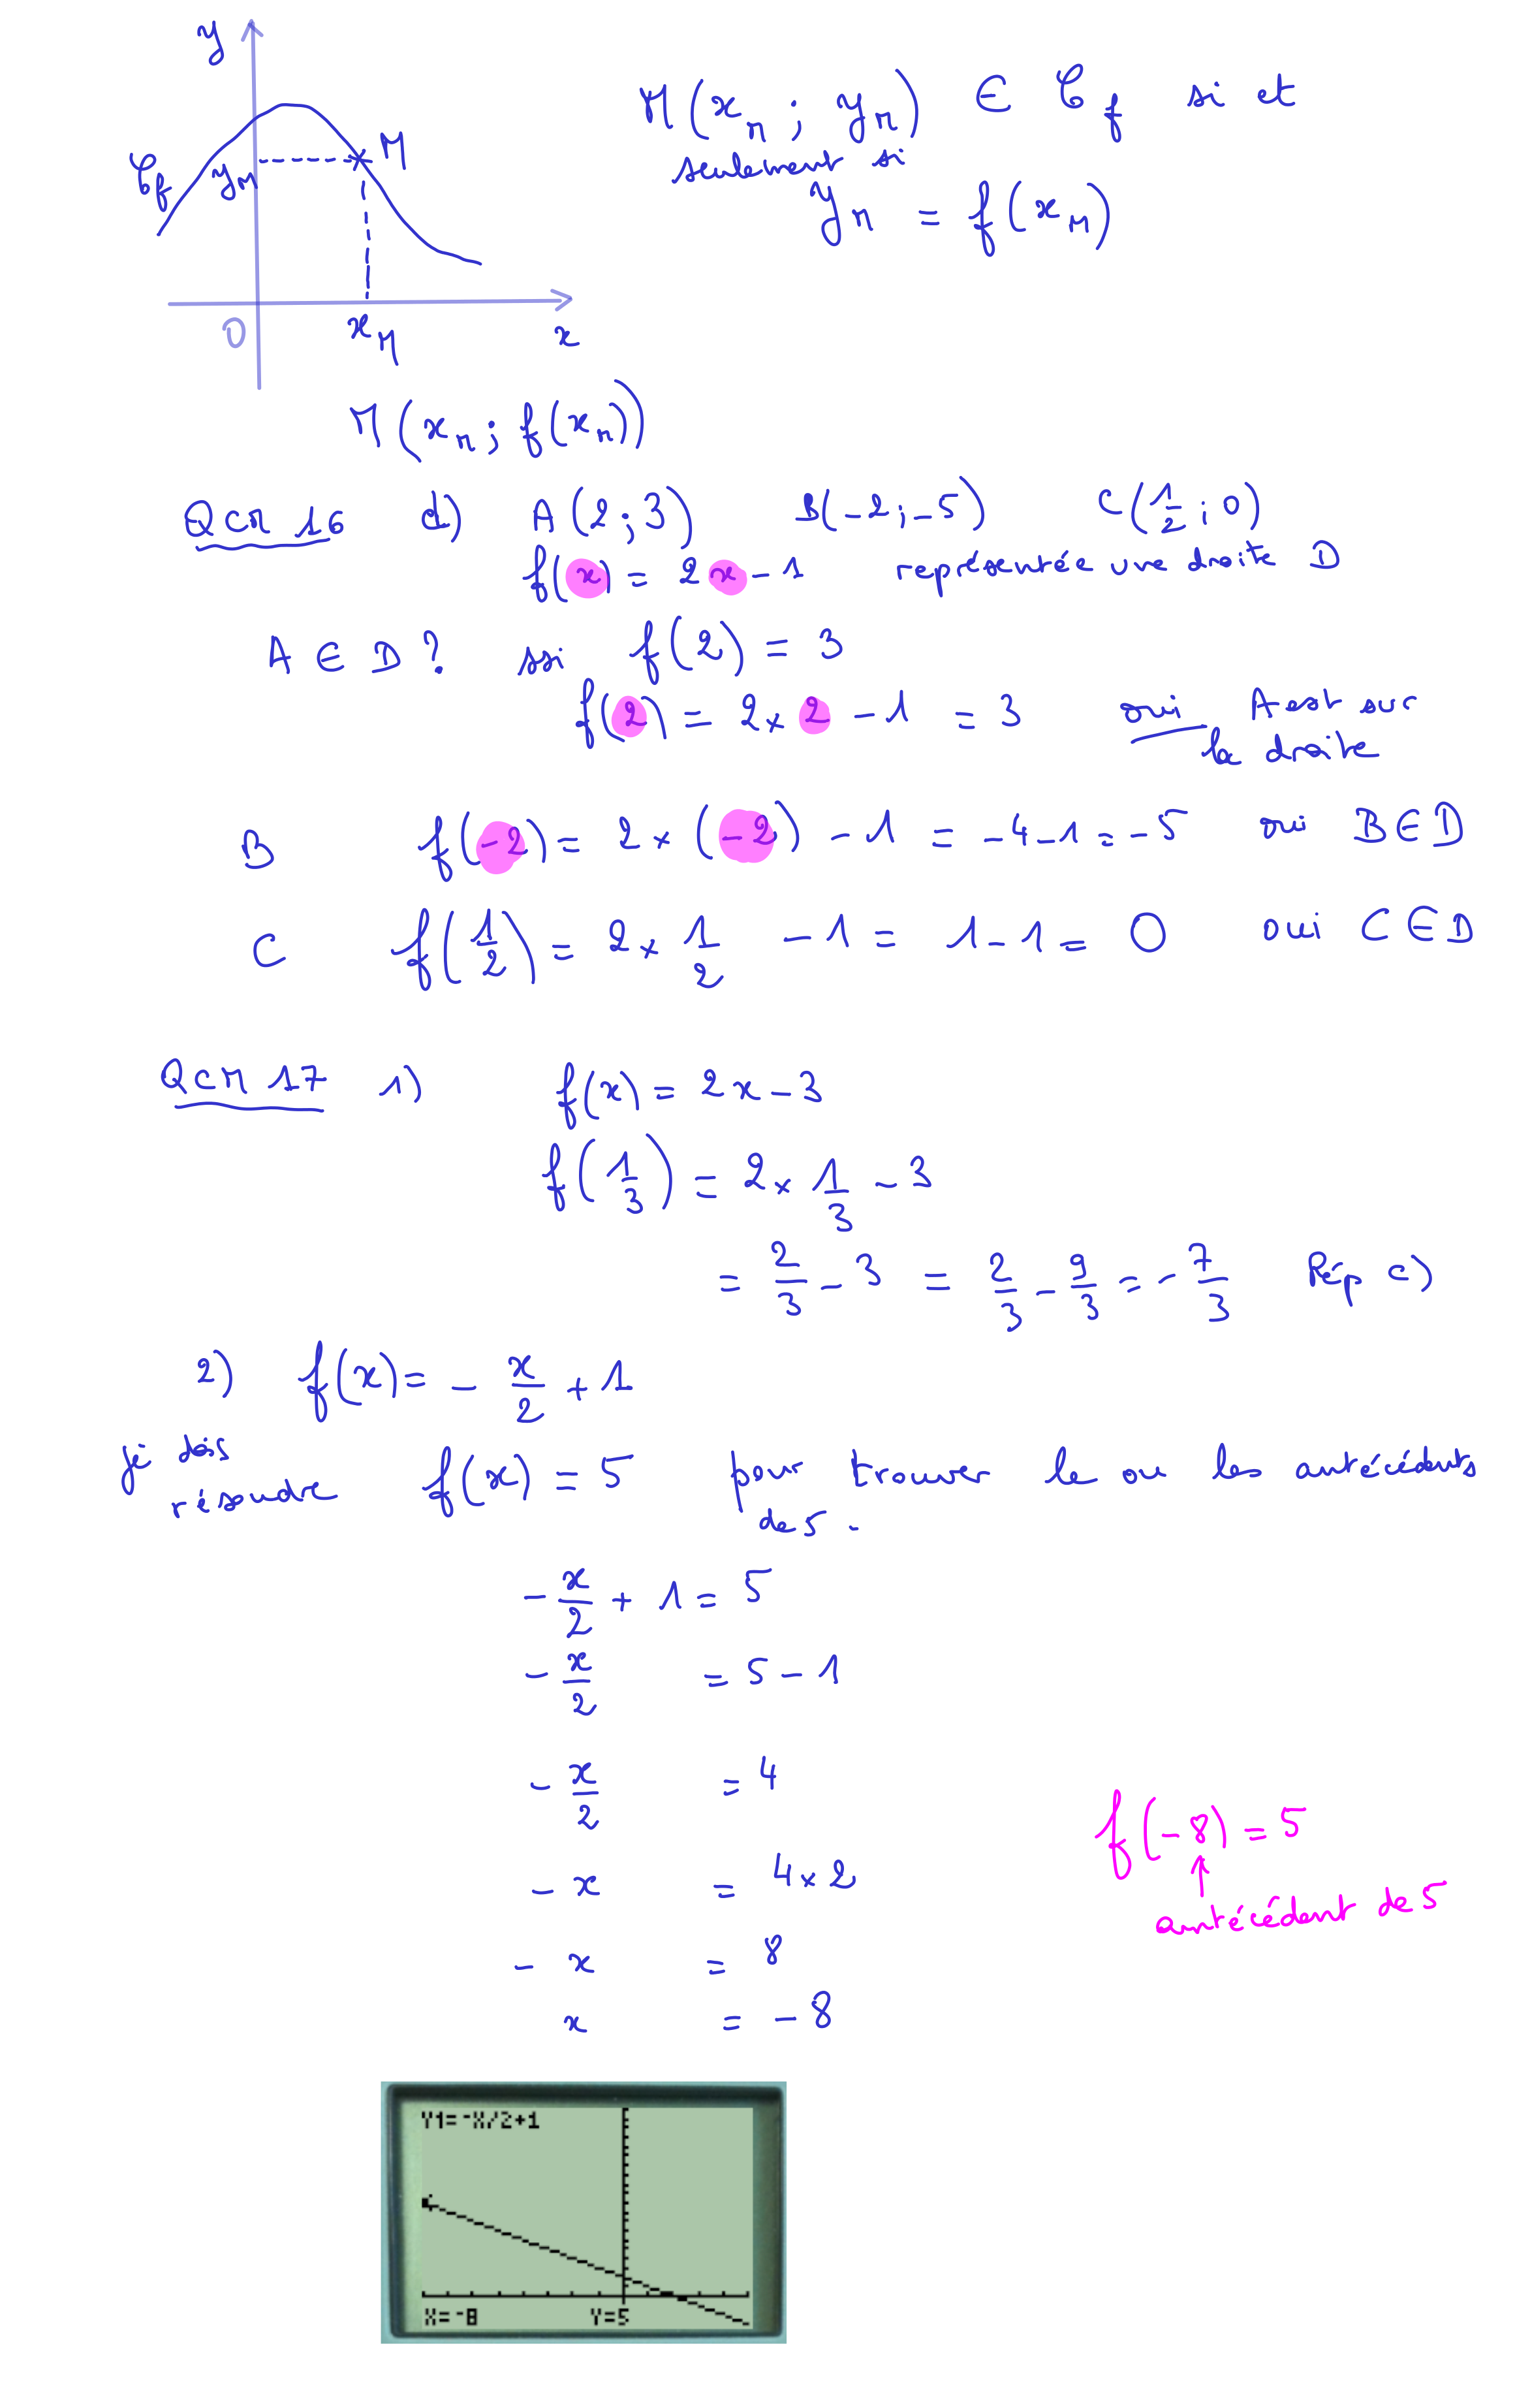 y
M(x_M ; y_M) ∈ 𝒞_f si et
seulement si
y_M = f(x_M)
𝒞_f y_M M
0 x_M x
M(x_M ; f(x_M))
QCM 16 d) A(2;3) B(-2;-5) C(1/2;0)
f(x) = 2x-1 représentée une droite D
A ∈ D? ssi f(2) = 3
f(2) = 2×2 -1 = 3 oui A est sur
la droite
B f(-2) = 2×(-2) -1 = -4-1 = -5 oui B∈D
C f(1/2) = 2×1/2 -1 = 1-1 = 0 oui C∈D
QCM 17 1) f(x) = 2x-3
f(1/3) = 2×1/3 -3
= 2/3 - 3 = 2/3 - 9/3 = -7/3 Rép c)
2) f(x) = - x/2 + 1
je dois
résoudre f(x) = 5 pour trouver le ou les antécédents
de 5.
- x/2 + 1 = 5
- x/2 = 5-1
- x/2 = 4
- x = 4×2
- x = 8
x = -8
f(-8) = 5
antécédent de 5
Y1=-X/2+1
X=-8 Y=5